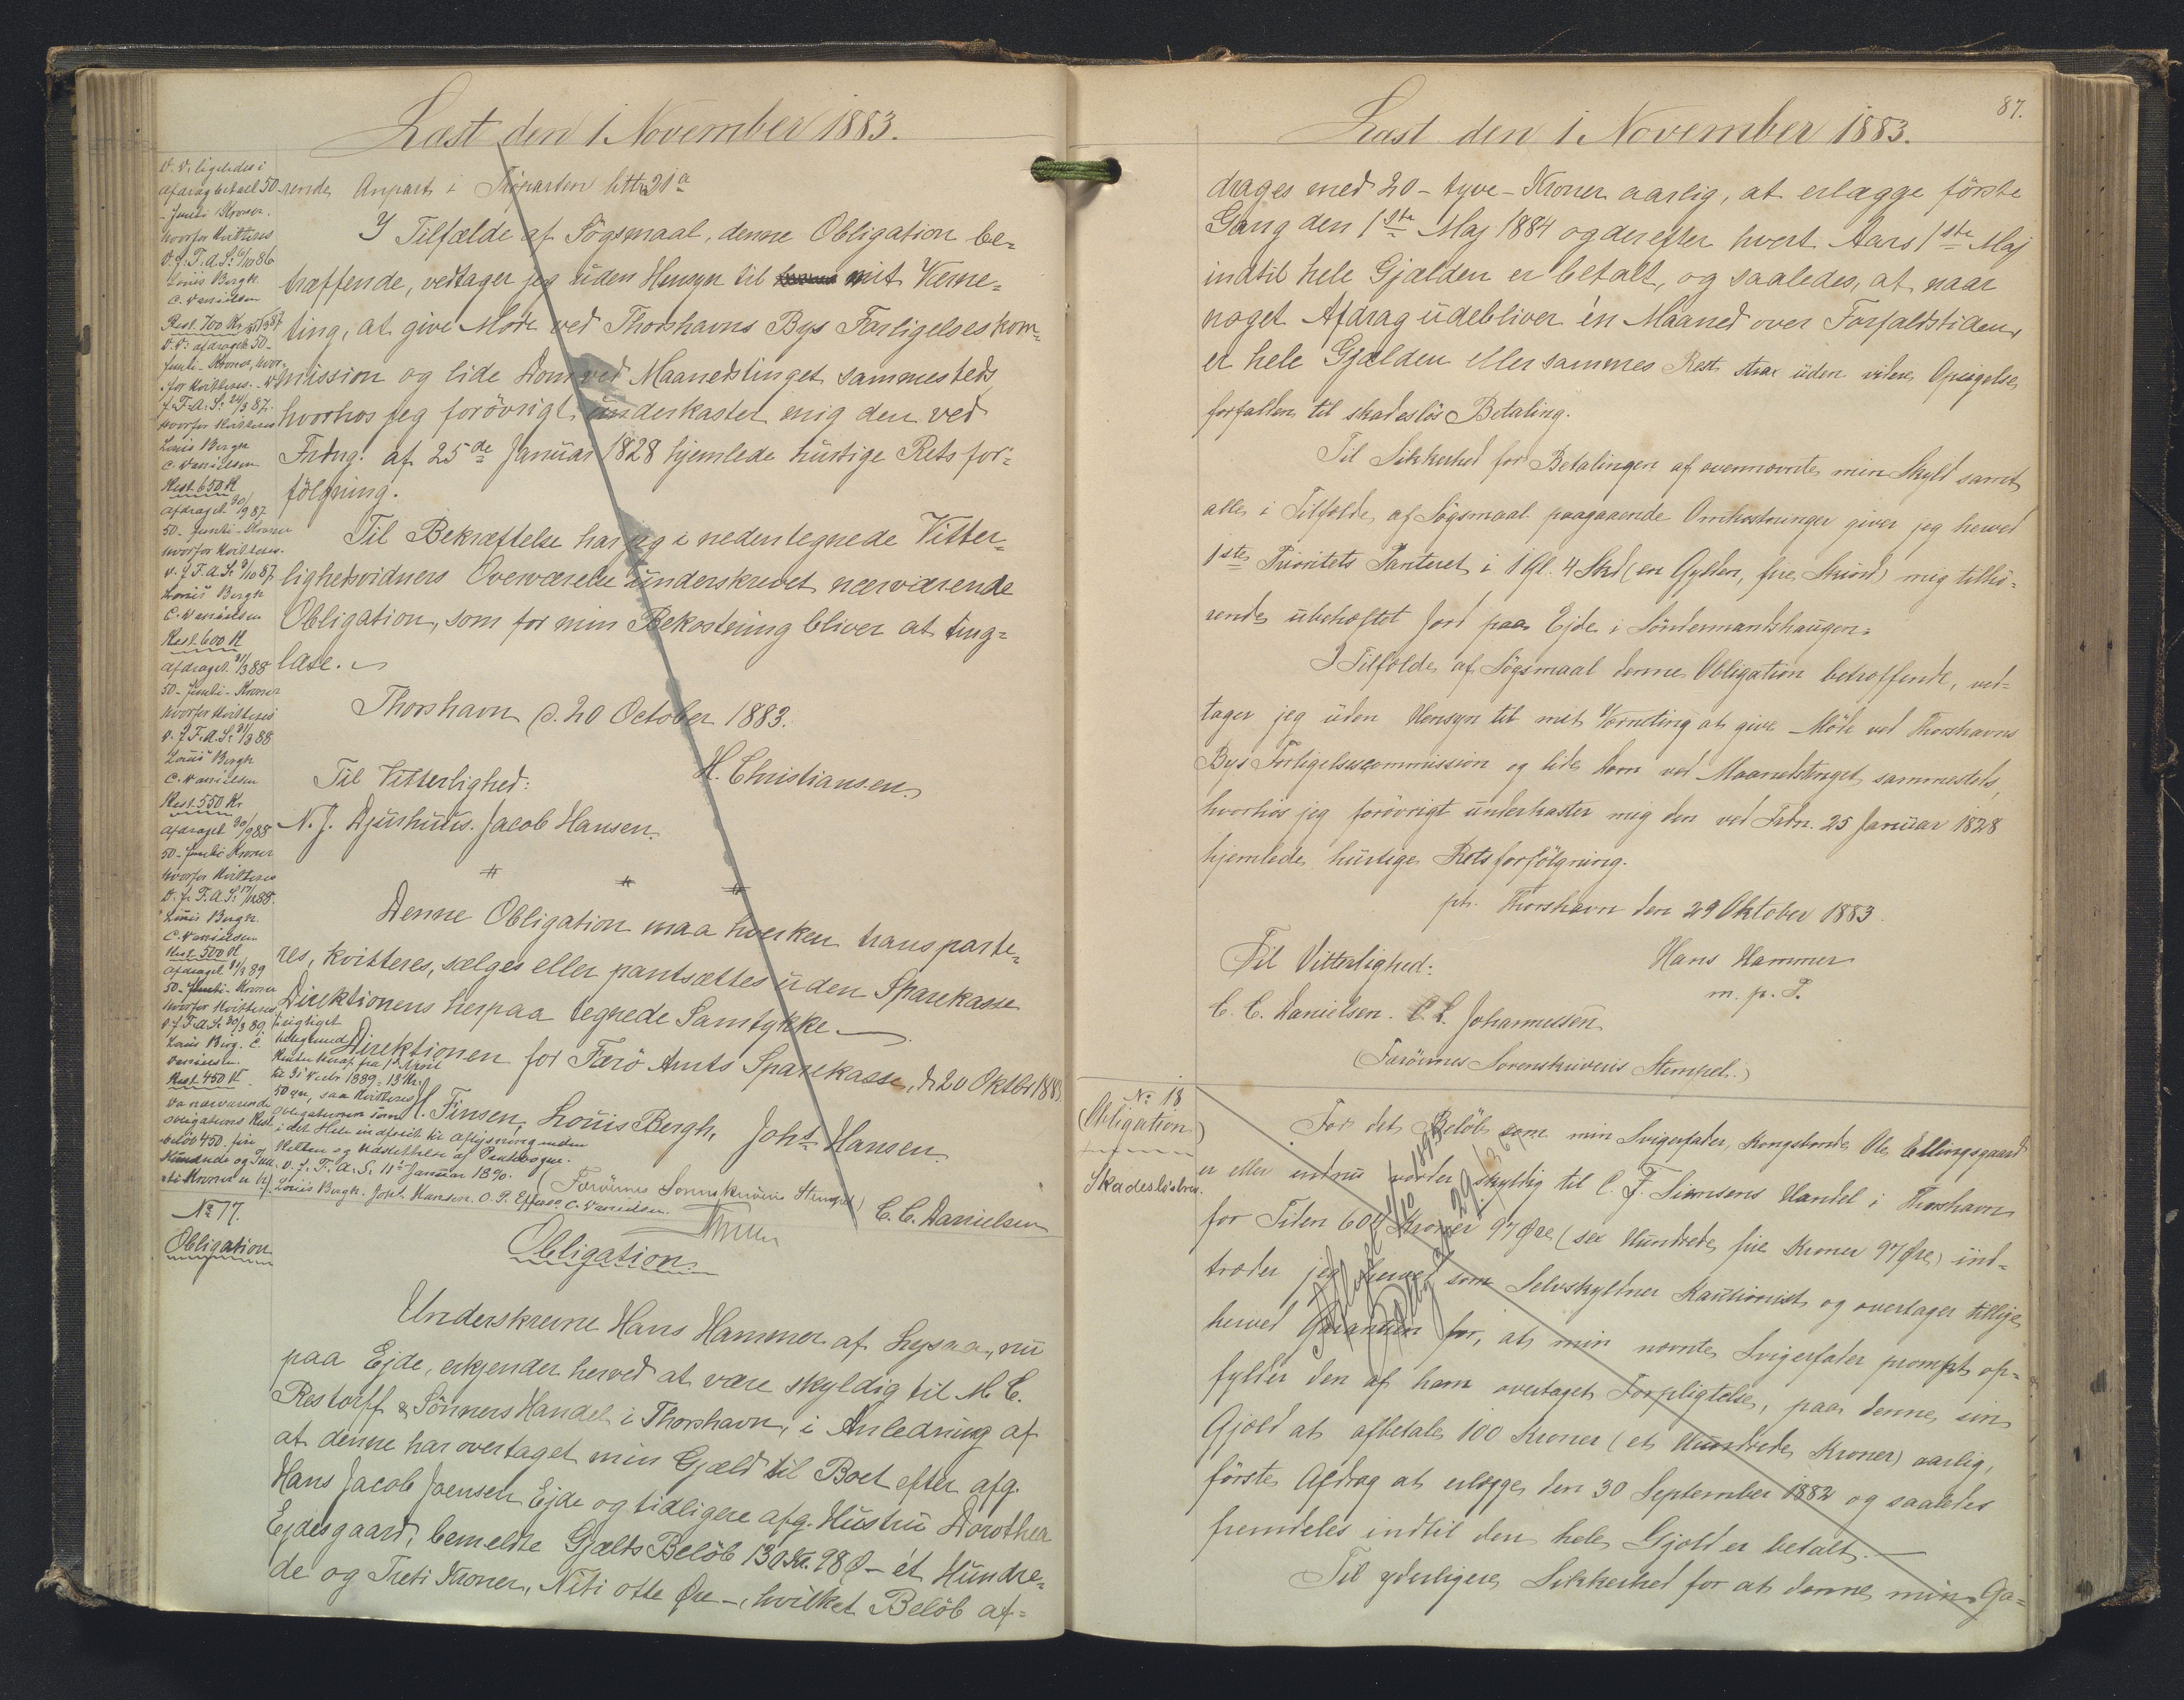 Læst den 1 November 1883.
rende Anpart i Tröparten littr. 31a
I Tilfælde af Sögsmaal, denne Obligation be-
træffende, vedtager jeg uden Hensyn til mit Værne-
ting, at give Möde ved Thorshavns Bys Forligelseskom-
mission og lide Dom ved Maanedstinget sammesteds,
hvorhos jeg forövrigt underkaster mig den ved
Frdng. af 25de Januar 1828 hjemlede hurtige Retsfor-
fölgning.
Til Bekræftelse har jeg i nedentegnede Vitter-
lighedsvidners Overværelse underskrevet nærværende
Obligation, som for min Bekostning bliver at ting-
læse.
Thorshavn d. 20 October 1883.
H. Christiansen.
Til Vitterlighed:
N. J. Djurhuus. Jacob Hansen.
Denne Obligation maa hverken transporte-
res, kvitteres, sælges eller pantsættes uden Sparekasse
Direktionens herpaa tegnede Samtykke.
Direktionen for Færö Amts Sparekasse, d. 20 Oktbr 1883.
H. Finsen, Louis Bergh, Johs Hansen.
(Færöernes Sorenskriveris Stempel)
C. C. Danielsen
V. V. ligeledes i
afdrag betalt 50
- femti Kroner.
hvorfor kvitteres
v. f. F. A. S. 6/10 86
Louis Bergh
C. Danielsen
Rest. 700 Kr 31/3 87
V. V. afdraget 50-
femti - Kroner, hvor-
for kvitteres.
f. F. A. S. 24/3 87.
hvorfor kvitteres
Louis Bergh
C. Danielsen
Rest. 650 Kr
afdraget 30/9 87
50 - femti - Kroner
hvorfor kvitteres.
v. f. F. A. S. 3/10 87
Louis Bergh
C. Danielsen
Rest. 600 Kr
afdraget 31/3 88
50 - femti - Kroner
hvorfor kvitteres
v. f. F. A. S. 31/3 88
Louis Bergh
C. Danielsen
Rest. 550 Kr
afdraget 30/9 88
50 - femti Kroner
hvorfor kvitteres
v. f. F. A. S. 17/11 88.
Louis Bergh
C. Danielsen
Rest. 500 Kr
afdraget 31/3 89
50 - femti - Kroner
hvorfor kvitteres
v. f. F. A. S. 30/3 89.
Louis Berg. C.
Danielsen.
Rest. 450 Kr
Da nærværende
obligations Rest
belöb 450. fire
Hundrede og Fem-
ti Kroner er be-
rigtiget
Renter heraf fra 1 April
til 31 Decbr 1889. 13 Kr.
50 öre, saa kvitteres
obligationen som
i det Hele indfriet til aflysning uden
Hellen og Udslettelse af Pantebogen.
v. f. F. A. S. 11te Januar 1890.
Louis Bergh. Joh. Hansen. O. P. Effersö. C. Danielsen.
No 77.
Obligation
Obligation.
Underskrevne Hans Hammer af Lysaa, nu
paa Ejde, erkjender herved at være skyldig til M. C.
Restorff & Sönners Handel i Thorshavn, i Anledning af
at denne har overtaget min Gjæld til Boet efter afg.
Hans Jacob Joensen Ejde og tidligere afg. Hustru Dorothea
Ejdesgaard, bemeldte Gjælds Belöb 130 Kr. 98 Ø - ét Hundre-
de og Treti Kroner, Niti otte Øre -, hvilket Belöb af-
87.
Læst den 1 November 1883.
drages med 20 - tyve - Kroner aarlig, at erlægge förste
Gang den 1ste Maj 1884 og derefter hvert Aars 1ste Maj
indtil hele Gjælden er betalt, og saaledes, at naar
noget Afdrag udebliver én Maaned over Forfaldstiden,
er hele Gjælden eller sammes Rest strax uden videre Opsigelse
forfalden til skadeslös Betaling.
Til Sikkerhed for Betalingen af ovennævnte min Skyld samt
alle i Tilfælde af Sögsmaal paagaaende Omkostninger giver jeg herved
1ste Prioritets Panteret i 1 Gl. 4 Skd (en Gylden, fire Skind) mig tilhö-
rende ubehæftet Jord paa Ejde i Söndermandshaugen.
I Tilfælde af Sögsmaal denne Obligation betræffende, ved-
tager jeg uden Hensyn til mit Værneting at give Möde ved Thorshavns
Bys Forligelsescommission og lide Dom ved Maanedstinget sammesteds,
hvorhos jeg forövrigt underkaster mig den ved Frdn. 25 Januar 1828
hjemlede hurtige Retsforfölgning.
pt. Thorshavn den 29 Oktober 1883.
Hans Hammer
m. p. P.
Til Vitterlighed:
C. C. Danielsen. C. L. Johannessen
(Færöernes Sorenskriveris Stempel.)
No 18
Obligation
Skadeslösbrev.
For det Belöb som min Svigerfader, Kongsbonde Ole Ellingsgaard
er eller endnu vorder skyldig til C. F. Siemsens Handel i Thorshavn
for Tiden 604 Kroner 97 Øre (sex Hundrede fire Kroner 97 Øre) ind-
træder jeg herved som Selvskyldner Kautionist og overtager tillige
herved Garantien for, at min nævnte Svigerfader prompt op-
fylder den af ham overtaget Forpligtelse, paa denne sin
Gjæld at afbetale 100 Kroner (et Hundrede Kroner) aarlig,
förste Afdrag at erlægge den 30 September 1882 og saaledes
fremdeles indtil den hele Gjæld er betalt.
Til yderligere Sikkerhed for at denne min Ga-